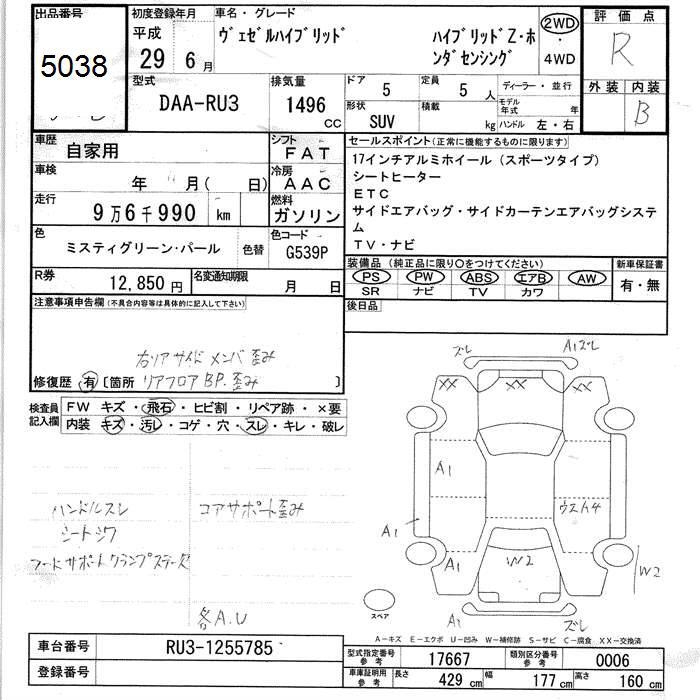 出品番号
5038
初度登録年月
平成
29 6月
車名・グレード
ヴェゼルハイブリッド
ハイブリッドZ・ホ
ンダセンシング
2WD
4WD
評価点
R
外装 内装
B
型式
DAA-RU3
排気量
1496
cc
ドア
5
定員
5 人
形状
SUV
積載
kg
ディーラー・並行
モデル
年式 年
ハンドル 左・右
車歴
自家用
シフト
FAT
車検
年 月( 日)
冷房
AAC
走行
9万6千990 km
燃料
ガソリン
色
ミスティグリーン・パール
色替
色コード
G539P
R券
12,850円
名変通知期限
月 日
セールスポイント(正常に機能するものに限ります)
17インチアルミホイール (スポーツタイプ)
シートヒーター
ETC
サイドエアバッグ・サイドカーテンエアバッグシステ
ム
TV・ナビ
装備品 (純正品に限り○をつけてください)
PS PW ABS エアB AW
SR ナビ TV カワ
新車保証書
有・無
後日品
注意事項申告欄(不具合内容等は具体的に記入して下さい)
右リアサイドメンバ歪み
修復歴 有 [箇所 リアフロアBP.歪み ]
検査員
記入欄
FW キズ・飛石・ヒビ割・リペア跡・×要
内装 キズ・汚レ・コゲ・穴・スレ・キレ・破レ
ハンドルスレ
シートシワ
フードサポートクランプステーズ
コアサポート歪み
各A.U
ズレ
A1ズレ
XX XX XX
A1
ウスイ4
A1
A1 W2 A1
W2
A1
ズレ
スペア
A-キズ E-エクボ U-凹み W-補修跡 S-サビ C-腐食 XX-交換済
車台番号
RU3-1255785
登録番号
型式指定番号
参考
17667
類別区分番号
参考
0006
車庫証明用
参考
長さ
429 cm
幅
177 cm
高さ
160 cm